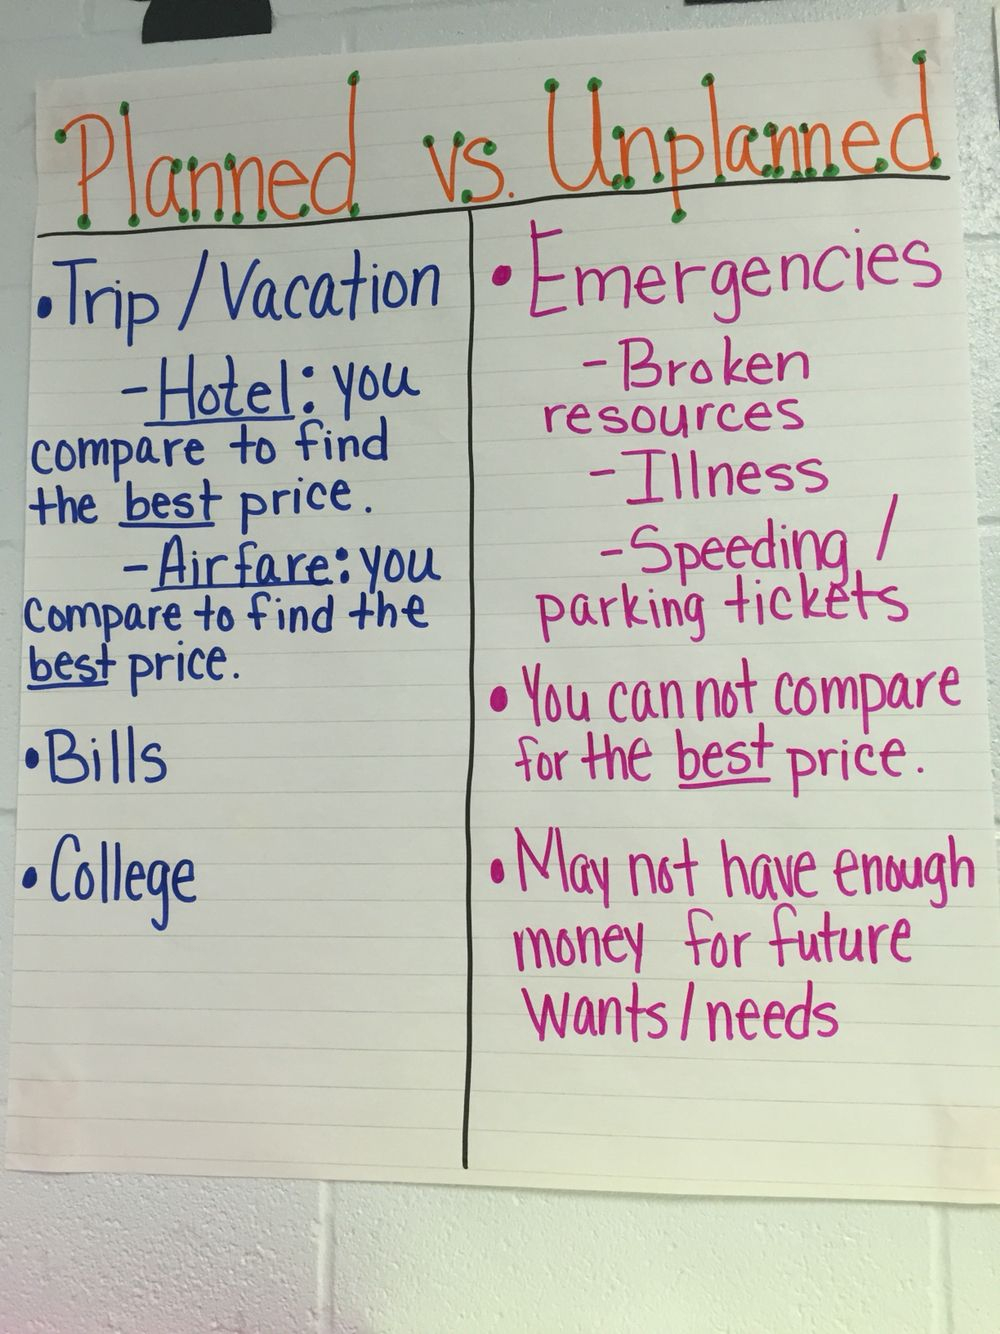 Planned vs. Unplanned
• Trip / Vacation
- Hotel: you
compare to find
the best price.
- Airfare: you
compare to find the
best price.
• Bills
• College
• Emergencies
- Broken
resources
- Illness
- Speeding /
parking tickets
• You cannot compare
for the best price.
• May not have enough
money for future
wants / needs